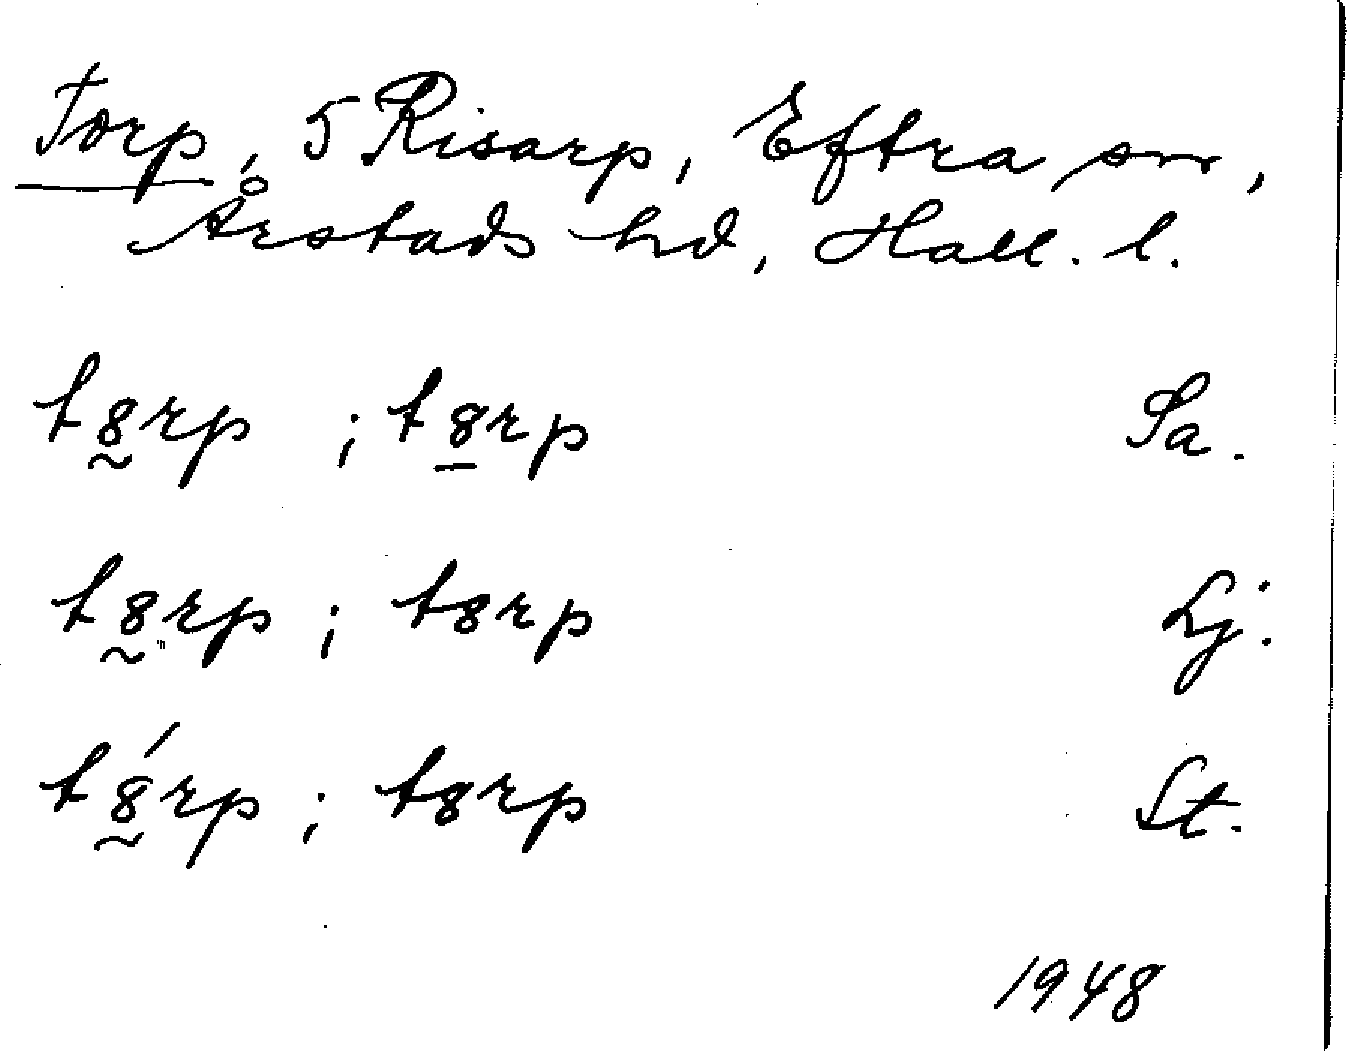 Torp, 5 Risarp, Eftra sn,
Årstads hd, Hall. l.
t8̰rp ; t8̲rp Sa.
t8̰rp ; t8rp Lj.
t8̰́rp ; t8rp St.
1948